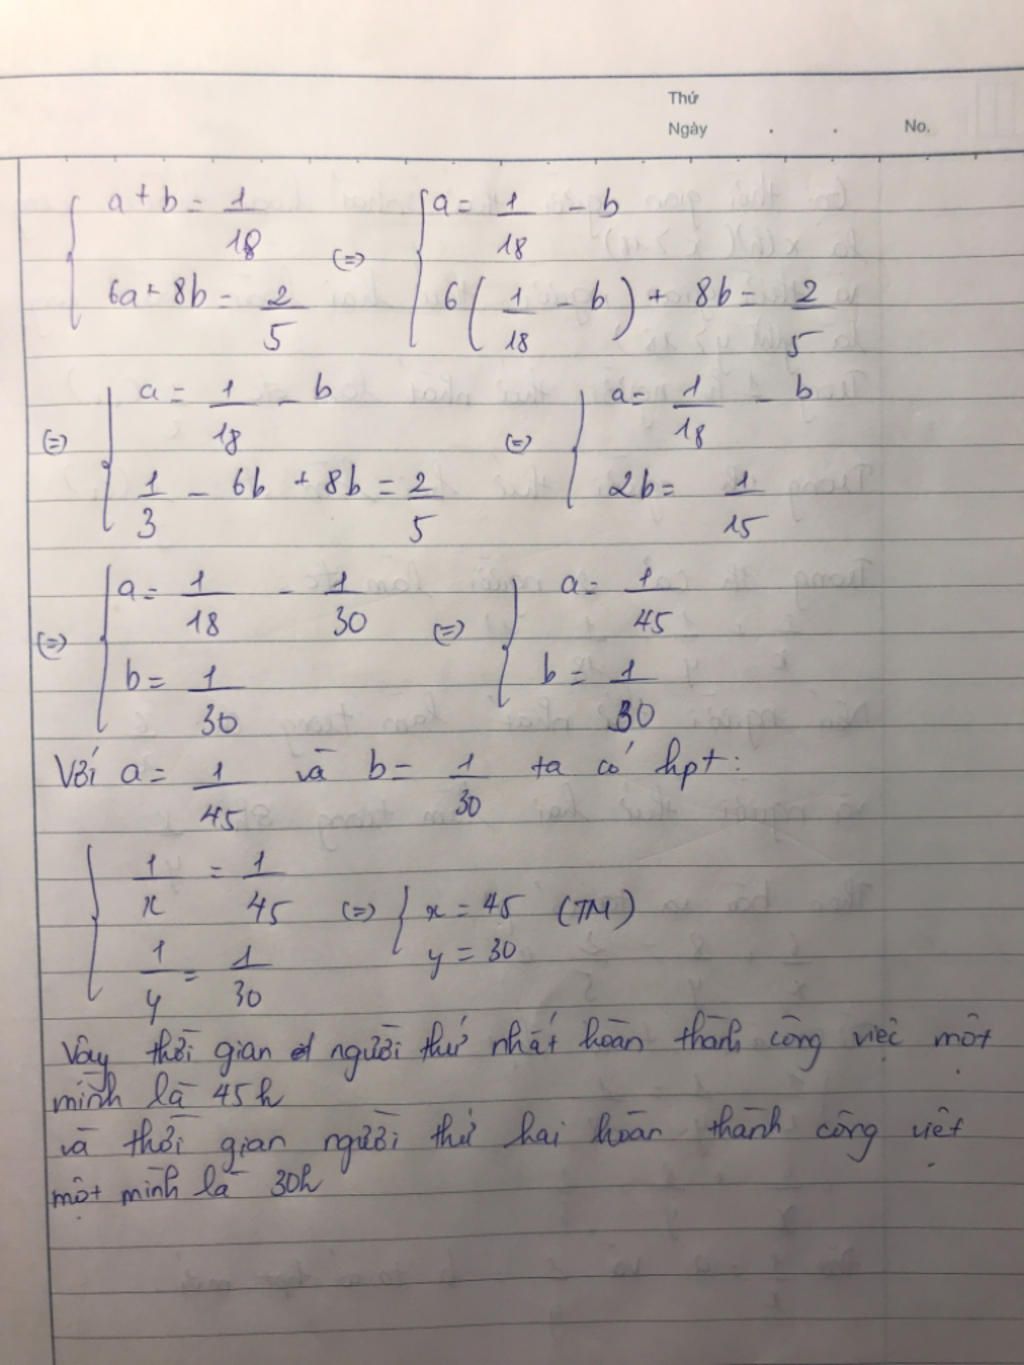 Thứ
Ngày . . No.
{ a + b = 1/18 (=) { a = 1/18 - b
6a + 8b = 2/5 6(1/18 - b) + 8b = 2/5
(=) { a = 1/18 - b (=) { a = 1/18 - b
1/3 - 6b + 8b = 2/5 2b = 1/15
(=) { a = 1/18 - 1/30 (=) { a = 1/45
b = 1/30 b = 1/30
Với a = 1/45 và b = 1/30 ta có hpt:
{ 1/x = 1/45 (=) { x = 45 (TM)
1/y = 1/30 y = 30
Vậy thời gian người thứ nhất hoàn thành công việc một
mình là 45h
và thời gian người thứ hai hoàn thành công việt
một mình là 30h